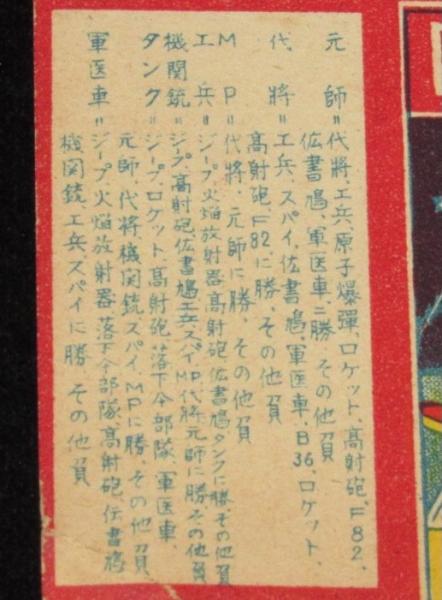 元師＝代将、工兵、原子爆弾、ロケット、高射砲、F82、
伝書鳩、軍医車、ニ勝　その他負
代将＝工兵、スパイ、伝書鳩、軍医車、B36、ロケット、
高射砲、F82、に勝、その他負
MP＝代将、元師に勝、その他負
工兵＝ジープ、火焔放射器、高射砲、伝書鳩、タンクに勝、その他負
機関銃＝ジープ、高射砲、伝書鳩、工兵、スパイ、MP、代将、元師に勝　その他負
タンク＝ジープ、ロケット、高射砲、落下傘部隊、軍医車、
元師、代将、機関銃、スパイ、MPに勝、その他負
軍医車＝ジープ、火焔放射器、落下傘部隊、高射砲、伝書鳩
機関銃、工兵、スパイに勝　その他負